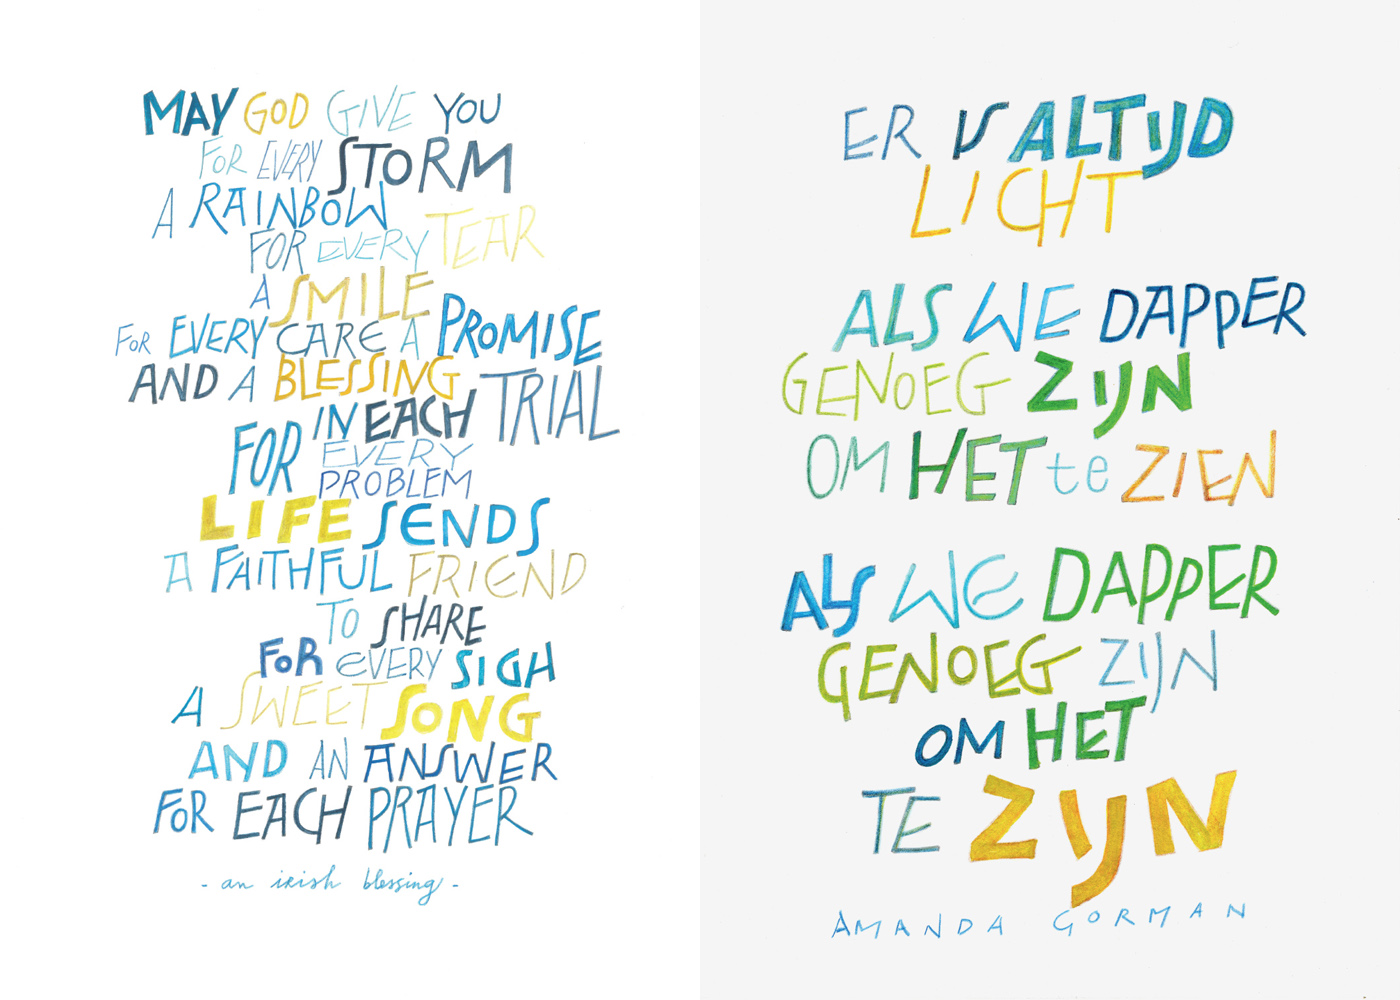 MAY GOD GIVE YOU
FOR EVERY STORM
A RAINBOW
FOR EVERY TEAR
A SMILE
FOR EVERY CARE A PROMISE
AND A BLESSING
IN EACH TRIAL
FOR EVERY
PROBLEM
LIFE SENDS
A FAITHFUL FRIEND
TO SHARE
FOR EVERY SIGH
A SWEET SONG
AND AN ANSWER
FOR EACH PRAYER
- an irish blessing -
ER IS ALTIJD
LICHT
ALS WE DAPPER
GENOEG ZIJN
OM HET te ZIEN
ALS WE DAPPER
GENOEG ZIJN
OM HET
TE ZIJN
AMANDA GORMAN